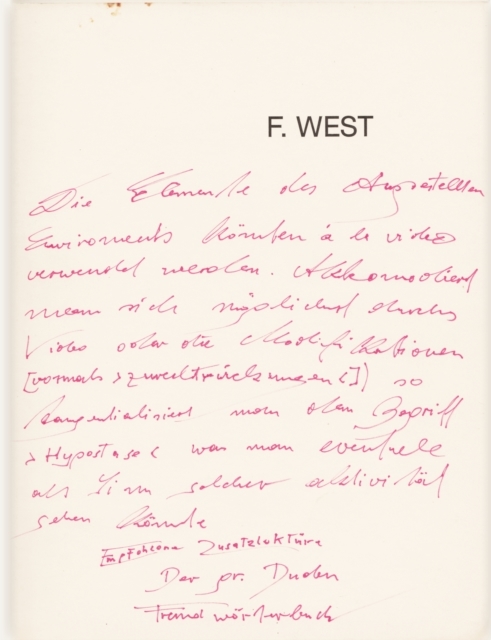 F. WEST
Die Elemente des Ausgestellten
Enviroments könnten á la video
verwendet werden. Akkomodiert
man sich möglichst durchs
Video oder die Modifikationen
[vormals >zurechtrückungen<]) so
tangentialisiert man den Begriff
>Hypostase< was man eventuell
als Sinn solcher aktivität
sehen könnte
Empfohlene Zusatzlektüre
Der gr. Duden
Fremdwörterbuch